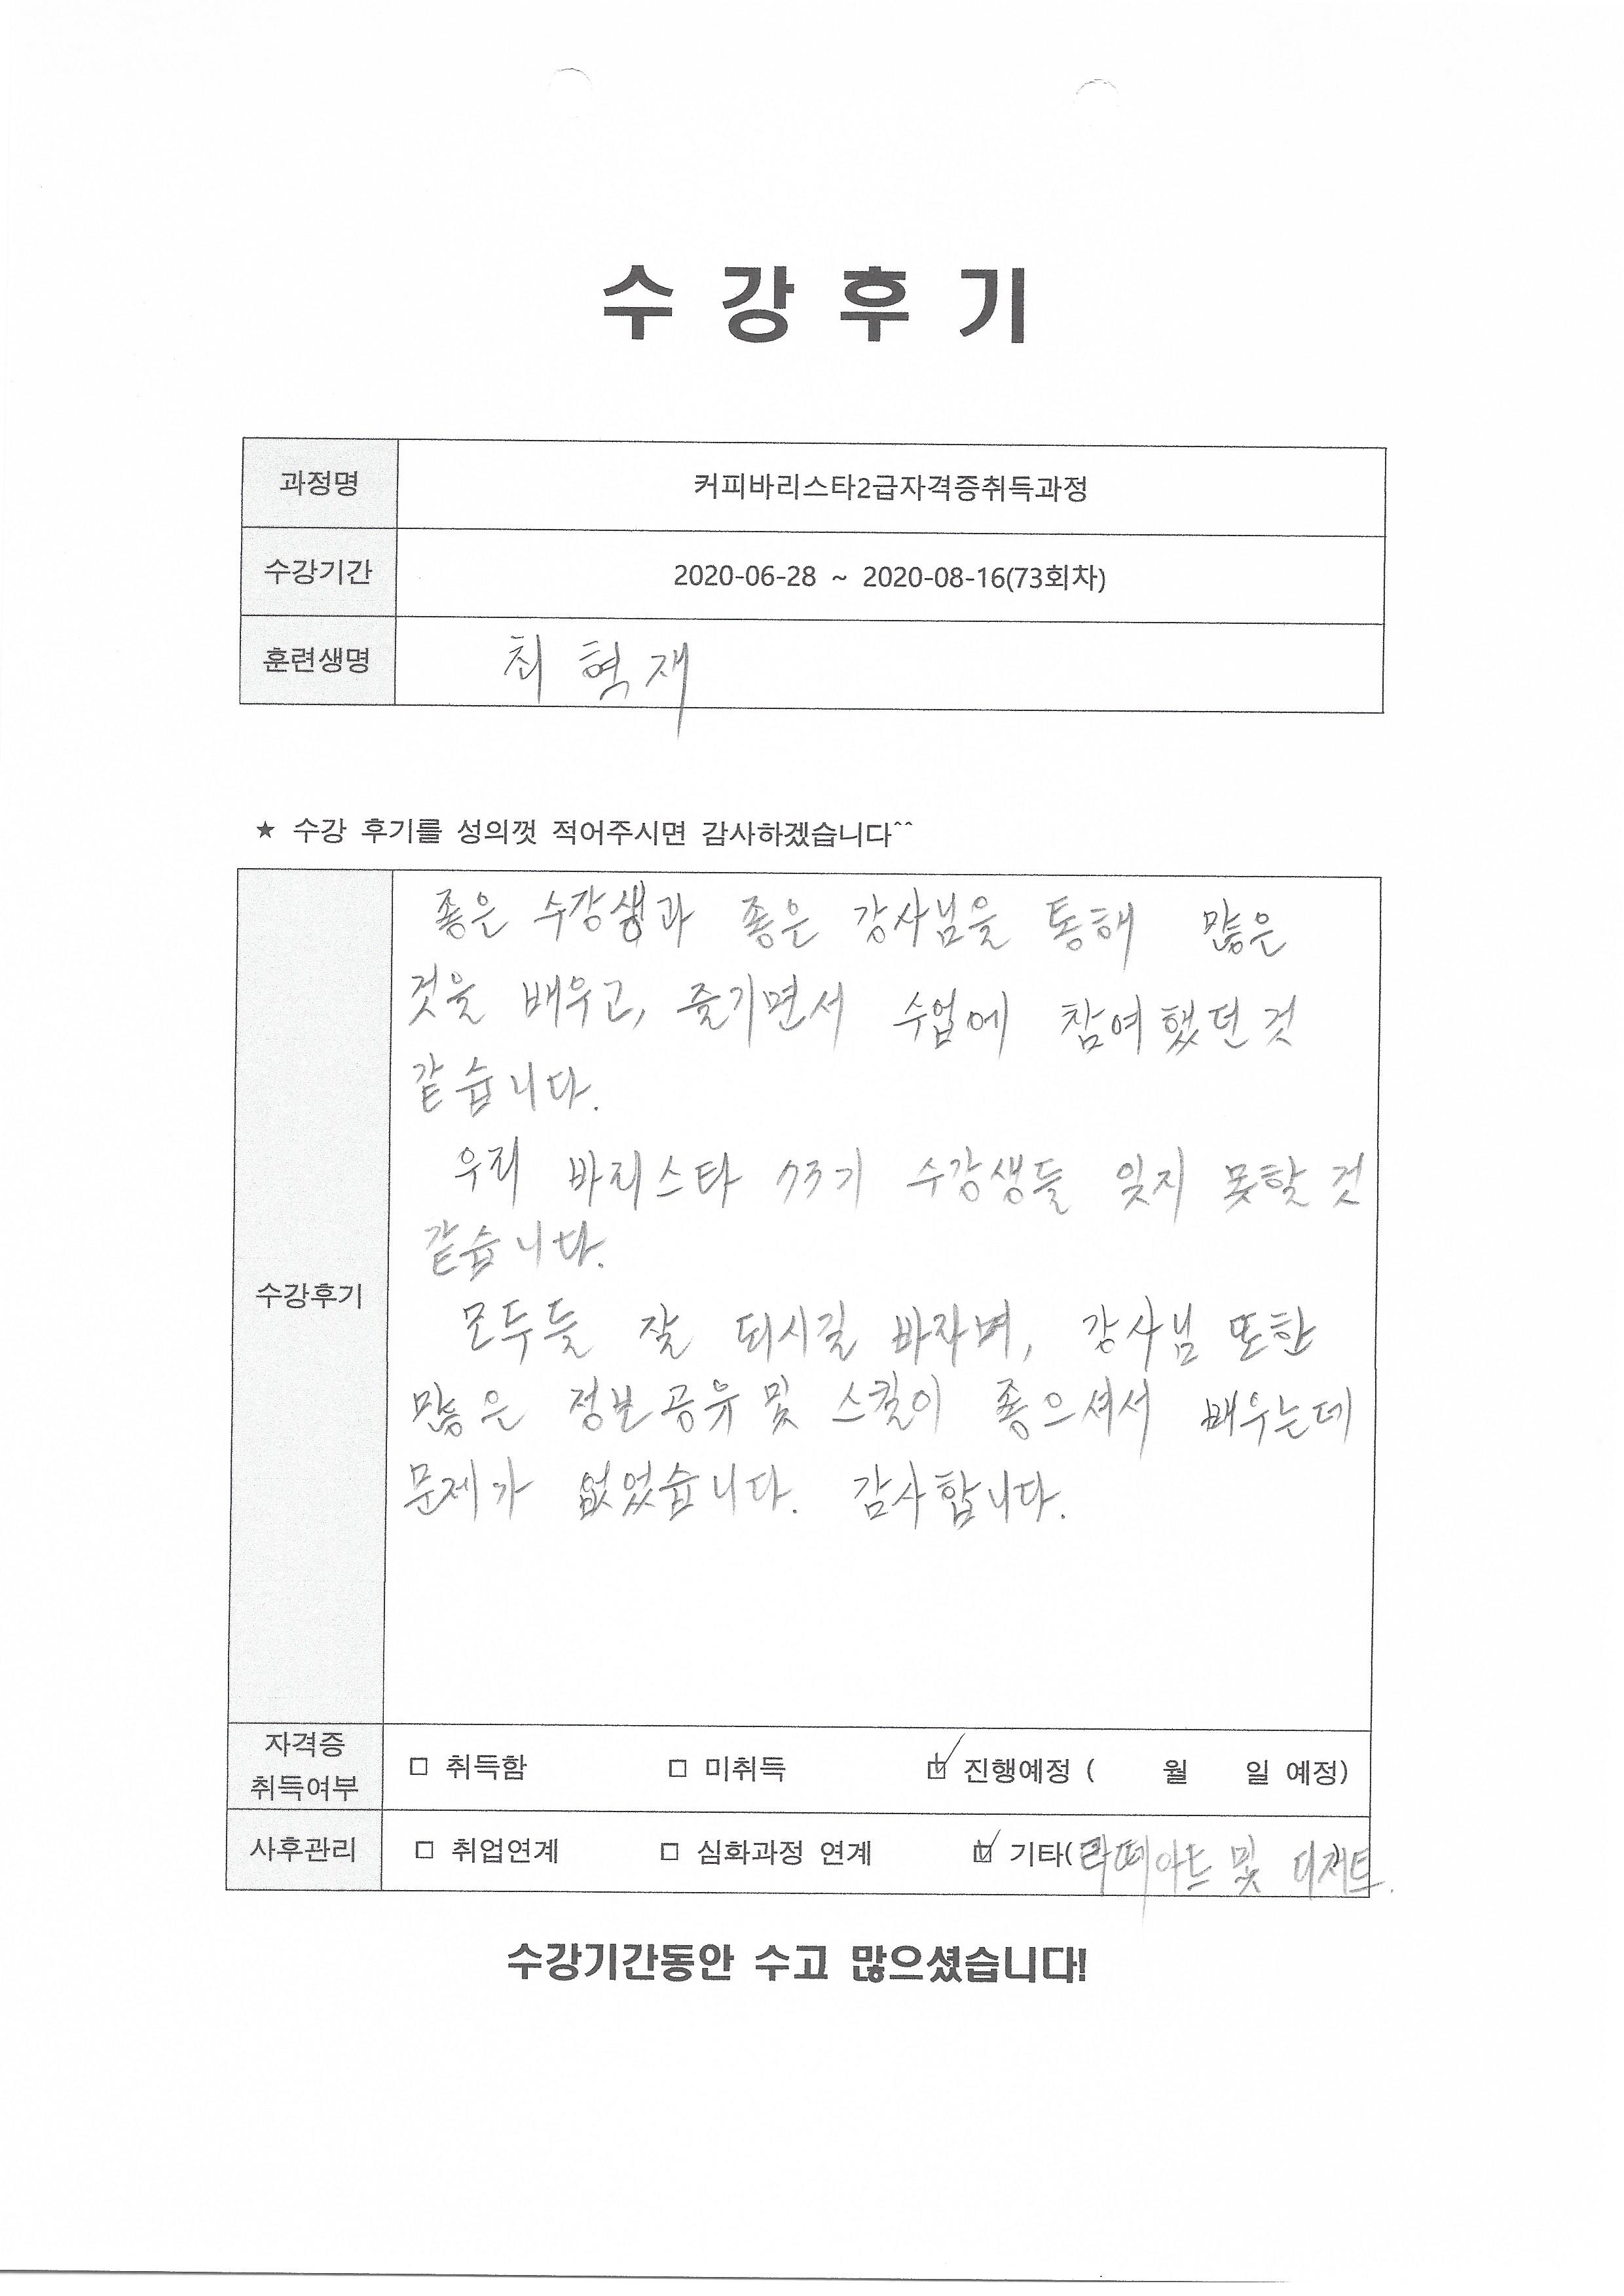 수 강 후 기
과정명 커피바리스타2급자격증취득과정
수강기간 2020-06-28 ~ 2020-08-16(73회차)
훈련생명 최혁재
★ 수강 후기를 성의껏 적어주시면 감사하겠습니다^^
좋은 수강생과 좋은 강사님을 통해 많은
것을 배우고, 즐기면서 수업에 참여했던것
같습니다.
우리 바리스타 73기 수강생들 잊지 못할 것
같습니다.
수강후기
모두들 잘 되시길 바라며, 강사님 또한
많은 정보공유 및 스킬이 좋으셔서 배우는데
문제가 없었습니다. 감사합니다.
자격증
취득여부
□ 취득함 □ 미취득 ☑ 진행예정 ( 월 일 예정)
사후관리 □ 취업연계 □ 심화과정 연계 ☑ 기타(라떼아트 및 디저트.
수강기간동안 수고 많으셨습니다!